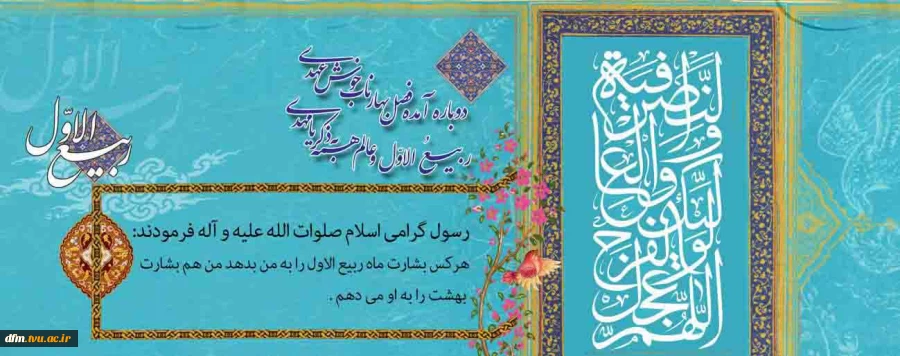 دوباره آمده فصل بهار ناب خوش عهدی
ربیعُ الاوّل و عالم همه به ذکر یا مهدی
ربیع الاوّل
رسول گرامی اسلام صلوات الله علیه و آله فرمودند:
هرکس بشارت ماه ربیع الاول را به من بدهد من هم بشارت
بهشت را به او می دهم .
اللهم عجل لولیک الفرج
والعافیة والنصر
dfm.tvu.ac.ir